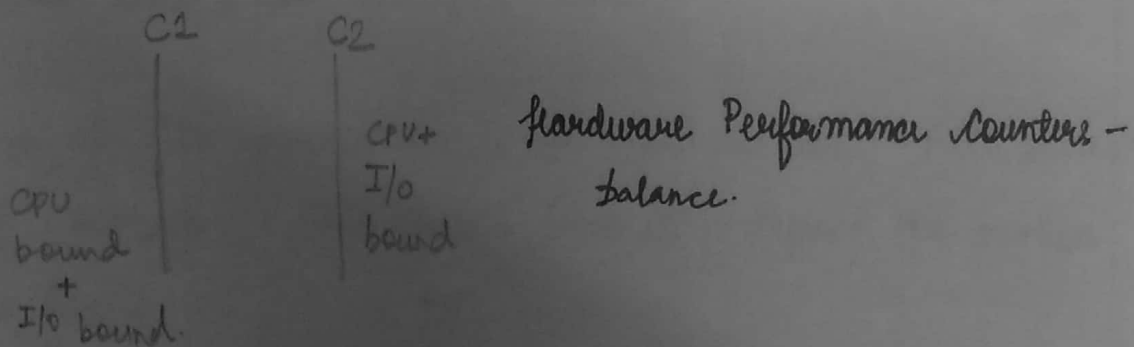 C1
C2
CPU
bound
+
I/O bound.
CPU+
I/O
bound
Hardware Performance Counters -
balance.